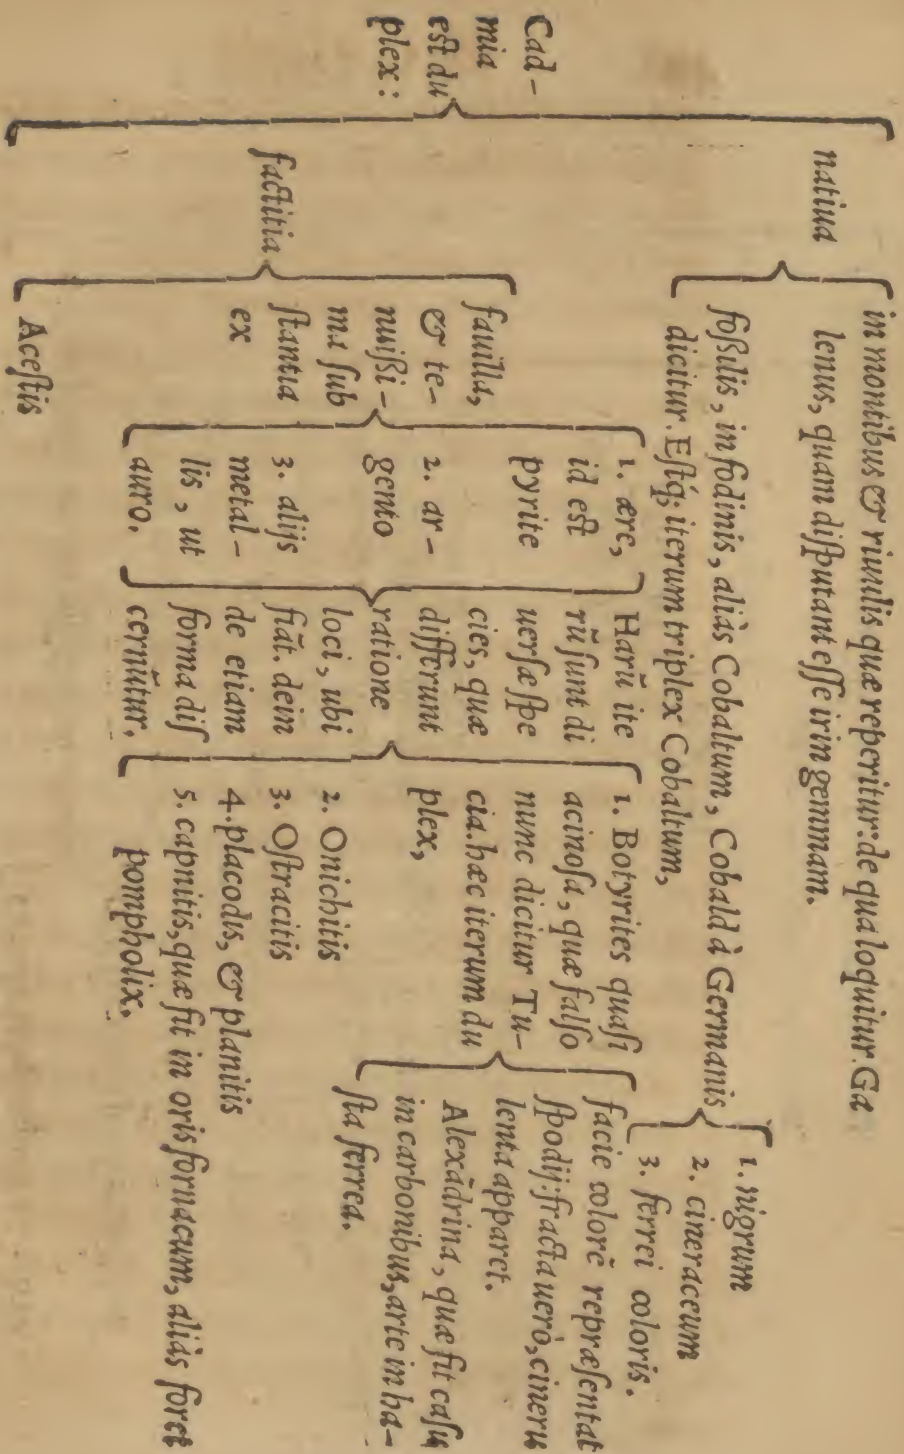 Cad-
mia
eſt du
plex:
natiua
in montibus & riuulis quæ reperitur: de qua loquitur. Ga
lenus, quam diſputant eſſe irin gemmam.
foßulis, in fodinis, aliàs Cobaltum, Cobald à Germanis
dicitur. Eſtq́; iterum triplex Cobaltum,
1. nigrum
2. cineraceum
3. ferrei coloris.
factitia
fauilla,
& te-
nuißi-
ma ſub
ſtantia
ex
1. ære,
id est
pyrite
2. ar-
gento
3. alijs
metal-
lis, ut
auro.
Harũ ite
rũ ſunt di
uerſæ ſpe
cies, quæ
differunt
ratione
loci, ubi
fiãt. dein
de etiam
forma diſ
cernũtur.
1. Botyrites quaſi
acinoſa, quæ falſo
nunc dicitur Tu-
cia. hæc iterum du
plex,
facie colorẽ repræſentat
ſpodij: fracta uerò, cineru
lenta apparet.
Alexãdrina, quæ fit caſu
in carbonibus, arte in ha-
ſta ferrea.
2. Onichitis
3. Oſtracitis
4. placodis, & planitis
5. capnitis, quæ fit in oris fornacum, aliàs foret
pompholix.
Aceſtis